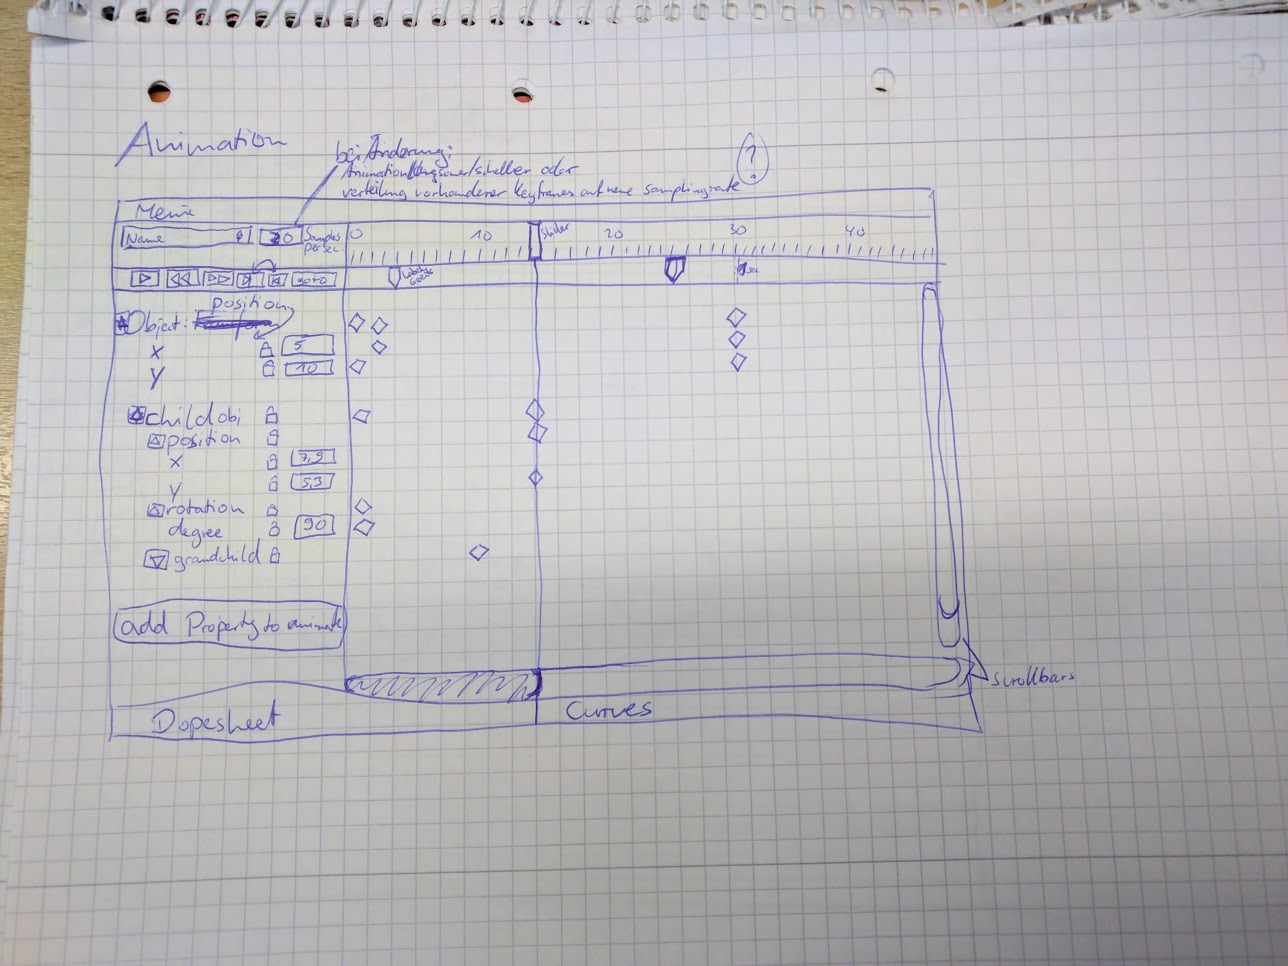 Animation
bei Änderung:
Animation langsamer/schneller oder
verteilung vorhandener Keyframes auf neue samplingrate
?
Menü
Name
30 Samples per sec
0 10 20 30 40
Slider
goto
1 sec
position
Object:
x 5
y 10
child obj
position
x 7,9
y 5,3
rotation
degree 90
grandchild
add Property to animate
scrollbars
Dopesheet
Curves